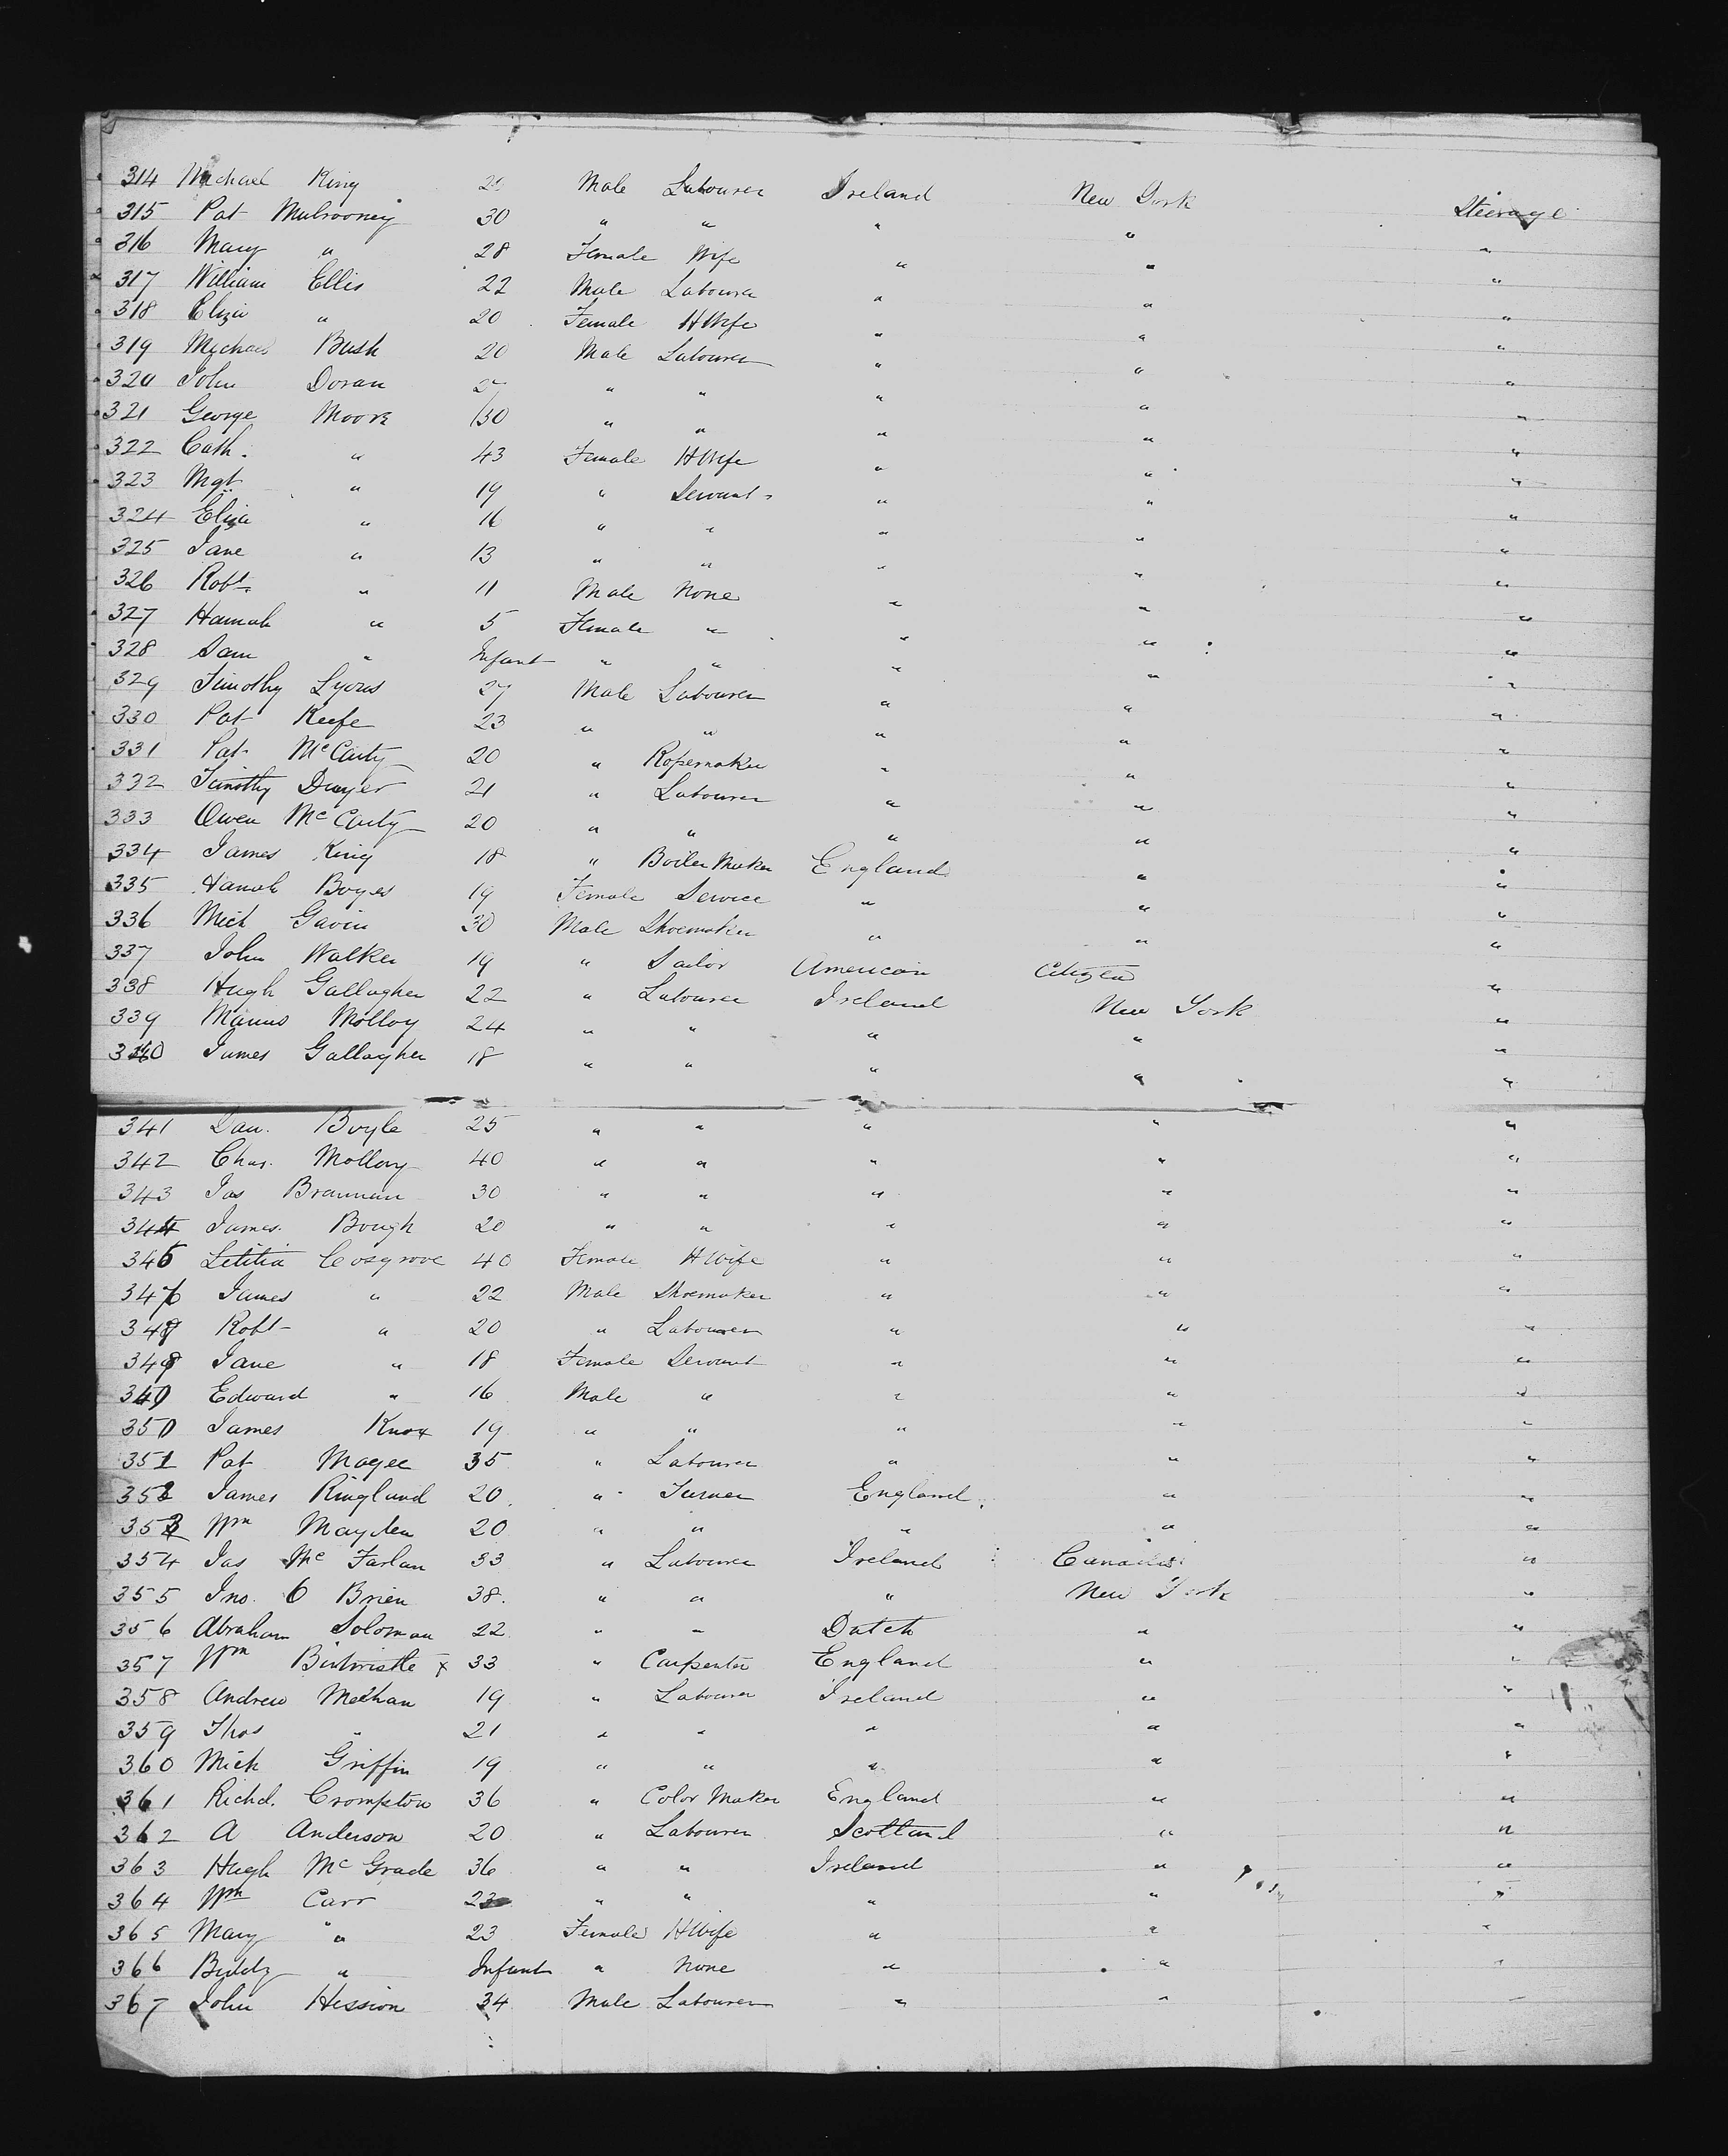 314 Michael King Male Labourer Ireland New York Steerage
315 Pat Mulrooney 30 " " " " "
316 Mary " 28 Female Wife " " "
317 William Ellis 22 Male Labourer " " "
318 Eliza " 20 Female HWife " " "
319 Michael Bush 20 Male Labourer " " "
320 John Doran 27 " " " " "
321 George Moore 30 " " " " "
322 Cath. " 43 Female HWife " " "
323 Mgt " 19 " Servant " " "
324 Eliza " 16 " " " " "
325 Jane " 13 " " " " "
326 Robt " 11 Male None " " "
327 Hannah " 5 Female " " " "
328 Sam " Infant " " " " "
329 Timothy Lyons 27 Male Labourer " " "
330 Pat Keefe 23 " " " " "
331 Pat McCarty 20 " Ropemaker " " "
332 Timothy Dwyer 21 " Labourer " " "
333 Owen McCarty 20 " " " " "
334 James King 18 " Boiler Maker England " "
335 Hanah Boyes 19 Female Service " " "
336 Mick Gavin 30 Male Shoemaker " " "
337 John Walker 19 " Sailor American Citizen "
338 Hugh Gallagher 22 " Labourer Ireland New York "
339 Manus Molloy 24 " " " " "
340 James Gallagher 18 " " " " "
341 Dan. Boyle 25 " " " " "
342 Chas. Molloy 40 " " " " "
343 Jas Brannan 30 " " " " "
344 James Bough 20 " " " " "
345 Letitia Cosgrove 40 Female HWife " " "
346 James " 22 Male Shoemaker " " "
347 Robt " 20 " Labourer " " "
348 Jane " 18 Female Servant " " "
349 Edward " 16 Male " " " "
350 James Knox 19 " " " " "
351 Pat Magee 35 " Labourer " " "
352 James Ringland 20 " Turner England " "
353 Wm Mayden 20 " " " " "
354 Jas McFarlan 33 " Labourer Ireland Canada "
355 Jno. O Brien 38. " " " New York "
356 Abraham Soloman 22 " " Dutch " "
357 Wm Birtwistle x 33 " Carpenter England " "
358 Andrew Meehan 19 " Labourer Ireland " "
359 Thos " 21 " " " " "
360 Mick Griffin 19 " " " " "
361 Richd. Crompton 36 " Color Maker England " "
362 A Anderson 20 " Labourer Scotland " "
363 Hugh McGrade 36 " " Ireland " "
364 Wm Carr 23 " " " " "
365 Mary " 23 Female HWife " " "
366 Biddy " Infant " None " " "
367 John Hession 34 Male Labourer " " "